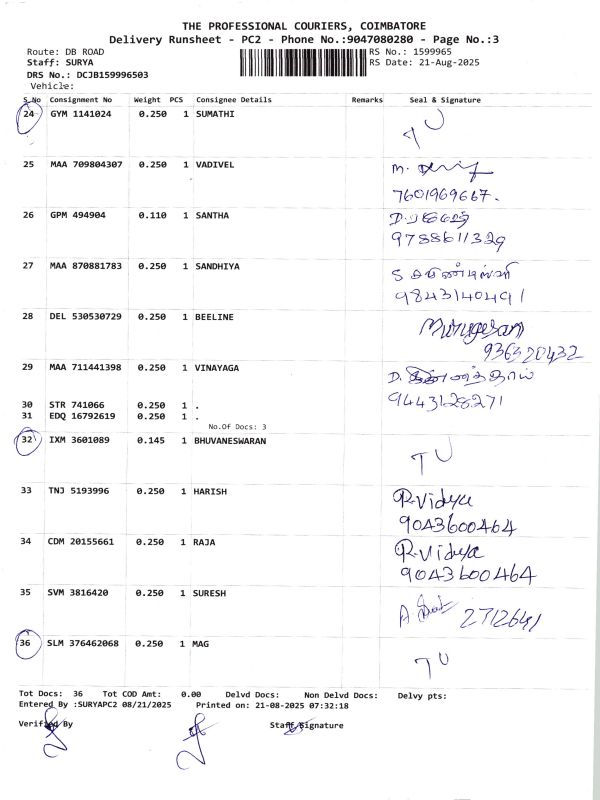 THE PROFESSIONAL COURIERS, COIMBATORE
Delivery Runsheet - PC2 - Phone No.:9047080280 - Page No.:3
Route: DB ROAD
RS No.: 1599965
Staff: SURYA
RS Date: 21-Aug-2025
DRS No.: DCJB159996503
Vehicle:
S.No Consignment No Weight PCS Consignee Details Remarks Seal & Signature
24 GYM 1141024 0.250 1 SUMATHI TU
25 MAA 709804307 0.250 1 VADIVEL M.
7601969667.
26 GPM 494904 0.110 1 SANTHA D.
9788611329
27 MAA 870881783 0.250 1 SANDHIYA S
9843140491
28 DEL 530530729 0.250 1 BEELINE Murugesan
936320432
29 MAA 711441398 0.250 1 VINAYAGA D.
9443128271
30 STR 741066 0.250 1 .
31 EDQ 16792619 0.250 1 .
No.Of Docs: 3
32 IXM 3601089 0.145 1 BHUVANESWARAN TU
33 TNJ 5193996 0.250 1 HARISH R.Vidya
9043600464
34 CDM 20155661 0.250 1 RAJA R.Vidya
9043600464
35 SVM 3816420 0.250 1 SURESH A 2712641
36 SLM 376462068 0.250 1 MAG TU
Tot Docs: 36 Tot COD Amt: 0.00 Delvd Docs: Non Delvd Docs: Delvy pts:
Entered By :SURYAPC2 08/21/2025 Printed on: 21-08-2025 07:32:18
Verified By Staff Signature